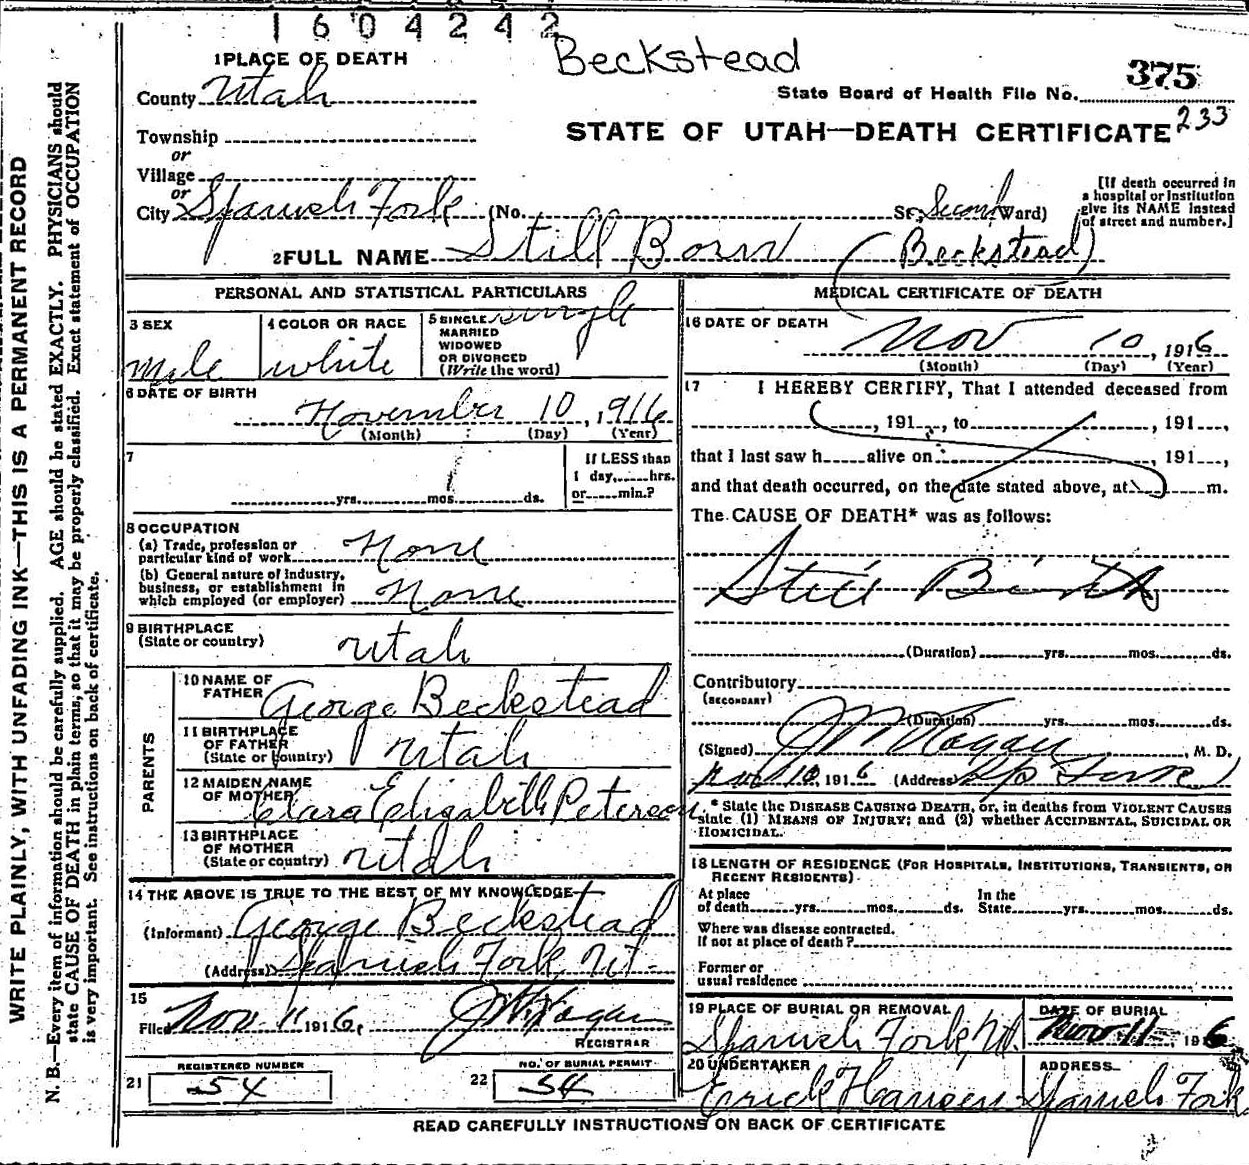 1604242
Beckstead
1 PLACE OF DEATH
375
County Utah
State Board of Health File No.
233
Township
STATE OF UTAH—DEATH CERTIFICATE
or
Village
or
City Spanish Fork (No. St; Second Ward)
[If death occurred in
a hospital or institution
give its NAME instead
of street and number.]
2 FULL NAME Still Born (Beckstead)
PERSONAL AND STATISTICAL PARTICULARS
3 SEX
Male
4 COLOR OR RACE
white
5 SINGLE
MARRIED
WIDOWED
OR DIVORCED
(Write the word)
single
6 DATE OF BIRTH
November 10, 1916
(Month) (Day) (Year)
7
If LESS than
1 day, hrs.
or min.?
yrs. mos. ds.
8 OCCUPATION
(a) Trade, profession or
particular kind of work None
(b) General nature of industry,
business, or establishment in
which employed (or employer) None
9 BIRTHPLACE
(State or country) Utah
PARENTS
10 NAME OF
FATHER George Beckstead
11 BIRTHPLACE
OF FATHER
(State or Country) Utah
12 MAIDEN NAME
OF MOTHER Clara Elizabeth Peterson
13 BIRTHPLACE
OF MOTHER
(State or country) Utah
14 THE ABOVE IS TRUE TO THE BEST OF MY KNOWLEDGE
(Informant) George Beckstead
(Address) Spanish Fork, Ut.
15
Filed Nov 11 1916,
REGISTRAR
21
REGISTERED NUMBER
54
22
NO. OF BURIAL PERMIT
54
MEDICAL CERTIFICATE OF DEATH
16 DATE OF DEATH
Nov 10, 1916
(Month) (Day) (Year)
17 I HEREBY CERTIFY, That I attended deceased from
, 191 , to , 191 ,
that I last saw h alive on , 191 ,
and that death occurred, on the date stated above, at m.
The CAUSE OF DEATH* was as follows:
Still Birth
(Duration) yrs. mos. ds.
Contributory
(SECONDARY)
(Duration) yrs. mos. ds.
(Signed) , M. D.
Nov 10, 1916 (Address) Sp Fork
* State the DISEASE CAUSING DEATH, or, in deaths from VIOLENT CAUSES
state (1) MEANS OF INJURY; and (2) whether ACCIDENTAL, SUICIDAL OR
HOMICIDAL.
18 LENGTH OF RESIDENCE (FOR HOSPITALS, INSTITUTIONS, TRANSIENTS, OR
RECENT RESIDENTS)
At place
of death yrs. mos. ds.
In the
State yrs. mos. ds.
Where was disease contracted.
If not at place of death?
Former or
usual residence
19 PLACE OF BURIAL OR REMOVAL
Spanish Fork, Ut.
DATE OF BURIAL
Nov 11, 1916
20 UNDERTAKER
Erick Hansen
ADDRESS
Spanish Fork
READ CAREFULLY INSTRUCTIONS ON BACK OF CERTIFICATE
WRITE PLAINLY, WITH UNFADING INK—THIS IS A PERMANENT RECORD
N. B.—Every item of information should be carefully supplied. AGE should be stated EXACTLY. PHYSICIANS should
state CAUSE OF DEATH in plain terms, so that it may be properly classified. Exact statement of OCCUPATION
is very important. See instructions on back of certificate.